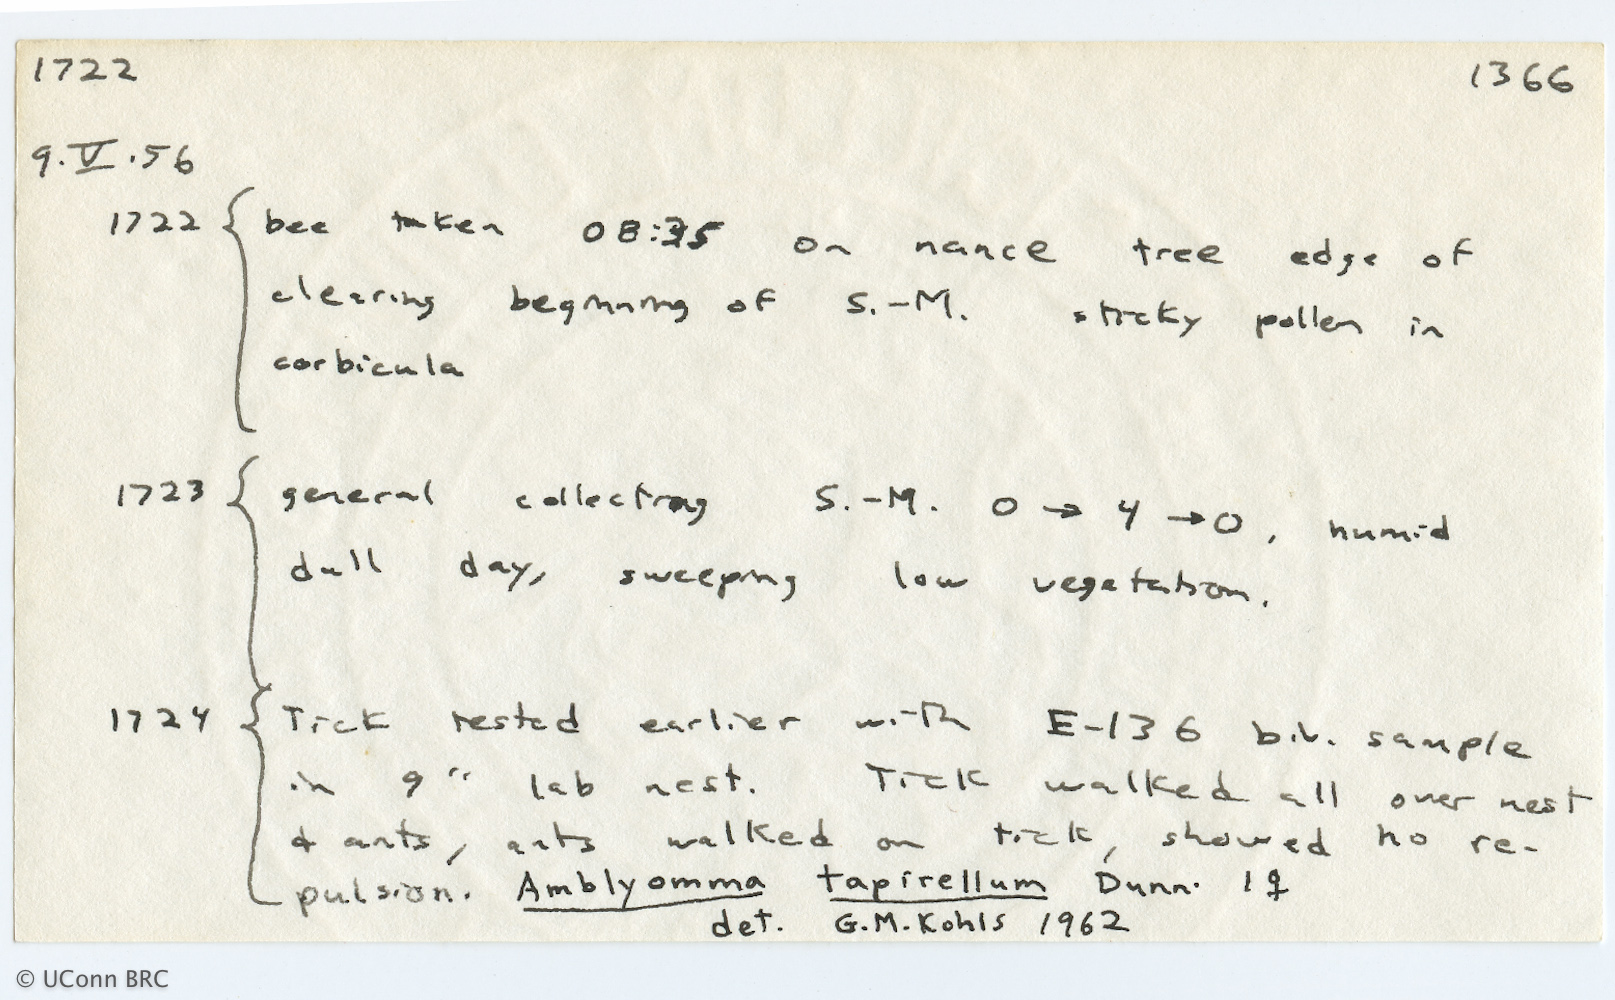 1722 1366
9.V.56
1722 { bee taken 08:35 on nance tree edge of
clearing beginning of S.-M. sticky pollen in
corbicula
1723 { general collecting S.-M. 0 → 4 → 0, humid
dull day, sweeping low vegetation.
1724 { Tick tested earlier with E-136 biv. sample
in 9" lab nest. Tick walked all over nest
& ants, ants walked on tick, showed no re-
pulsion. Amblyomma tapirellum Dunn. 1♀
det. G.M.Kohls 1962
© UConn BRC